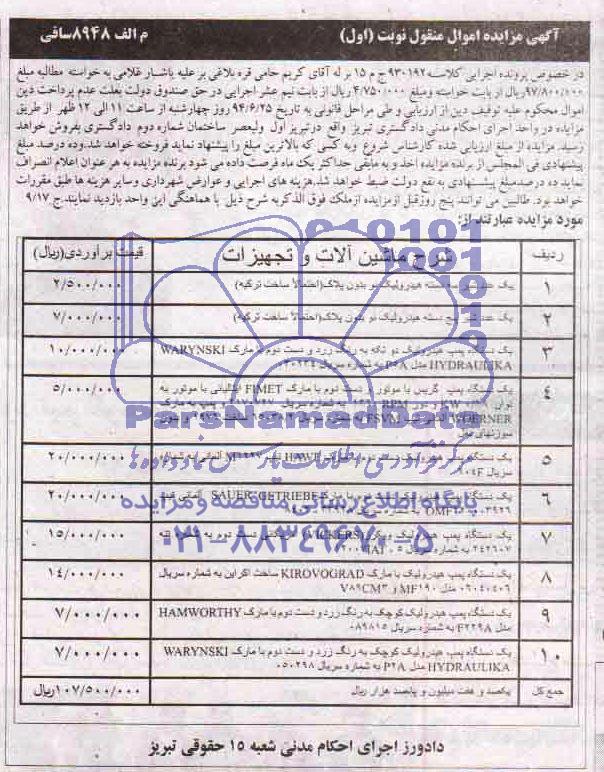 آگهی مزایده اموال منقول نوبت (اول)
م الف ۸۹۴۸ سافی
در خصوص پرونده اجرایی کلاسه ۹۳۰۱۹۲ ج م ۱۵ بر له آقای کریم حامی قره بلاغی بر علیه یاشار غلامی به خواسته مطالبه مبلغ
۹۷/۸۰۰/۱۰۰ ریال از بابت خواسته ومبلغ ۴/۷۵۰/۰۰۰ ریال از بابت نیم عشر اجرایی در حق صندوق دولت بعلت عدم پرداخت دین
اموال محکوم علیه توقیف دین از ارزیابی و طی مراحل قانونی به تاریخ ۹۴/۶/۲۵ روز چهارشنبه از ساعت ۱۱ الی ۱۲ ظهر از طریق
مزایده در واحد اجرای احکام مدنی دادگستری تبریز واقع در تبریز اول ولیعصر ساختمان شماره دوم دادگستری بفروش خواهد
رسید. مزایده از مبلغ ارزیابی شده کارشناس شروع و به کسی که بالاترین مبلغ را پیشنهاد نماید فروخته خواهد شد. وده درصد مبلغ
پیشنهادی فی المجلس از برنده مزایده اخذ و به مابقی حداکثر یک ماه فرصت داده می شود برنده مزایده به هر عنوان اعلام انصراف
نماید ده درصد مبلغ پیشنهادی به نفع دولت ضبط خواهد شد. هزینه های اجرایی و عوارض شهرداری وسایر هزینه ها طبق مقررات
خواهد بود. طالبین می توانند پنج روز قبل از مزایده از ملک فوق الذکر به شرح ذیل با هماهنگی این واحد بازدید نمایند. ج ۹/۱۷
مورد مزایده عبارتند از:
ردیف شرح ماشین آلات و تجهیزات قیمت برآوردی (ریال)
۱ یک دسته هیدرولیک نو بدون پلاک (احتمالاً ساخت ترکیه) ۲/۵۰۰/۰۰۰
۲ یک پنج دسته هیدرولیک نو بدون پلاک (احتمالاً ساخت ترکیه) ۷/۰۰۰/۰۰۰
۳ یک دستگاه پمپ هیدرولیک دو تکه به رنگ زرد و دست دوم با مارک WARYNSKI ۱۰/۰۰۰/۰۰۰
HYDRAULIKA مدل P۲A به شماره سریال
۴ یک دستگاه پمپ گریس با موتور دست دوم با مارک FIMET ایتالیایی با موتور به ۵/۰۰۰/۰۰۰
توان KW و دور RPM به شماره سریال و پمپ به مارک
WOERNER به شماره سریال و بدون
سوزنهای عمل
۵ یک دستگاه پمپ هیدرولیک دست دوم HAWE آلمانی به شماره ۲۰/۰۰۰/۰۰۰
سریال
۶ یک دستگاه پمپ هیدرولیک با مارک SAUER GETRIEBE آلمانی ۲۰/۰۰۰/۰۰۰
به شماره سریال
۷ یک دستگاه پمپ هیدرولیک (VICKERS) دست دوم به شماره ۱۵/۰۰۰/۰۰۰
۲۴۲۶۰۷ به شماره سریال
۸ یک دستگاه پمپ هیدرولیک با مارک KIROVOGRAD ساخت اکراین به شماره سریال ۱۴/۰۰۰/۰۰۰
۰۶۰۴۰۴۰۶ مدل MF۱۹۰ و V۸۹CM۳
۹ یک دستگاه پمپ هیدرولیک کوچک به رنگ زرد و دست دوم با مارک HAMWORTHY ۷/۰۰۰/۰۰۰
مدل F۲۲۹A به شماره سریال ۰۸۹۸۱۵
۱۰ یک دستگاه پمپ هیدرولیک کوچک به رنگ زرد و دست دوم با مارک WARYNSKI ۷/۰۰۰/۰۰۰
HYDRAULIKA مدل P۲A به شماره سریال ۰۵۰۲۹۸
جمع کل یکصد و هفت میلیون و پانصد هزار ریال ۱۰۷/۵۰۰/۰۰۰ ریال
دادورز اجرای احکام مدنی شعبه ۱۵ حقوقی تبریز
ParsNamadData
مرکز فرآوری اطلاعات پارس نماد داده ها
پایگاه اطلاع رسانی مناقصه و مزایده
۰۲۱-۸۸۳۴۹۶۷۰-۵